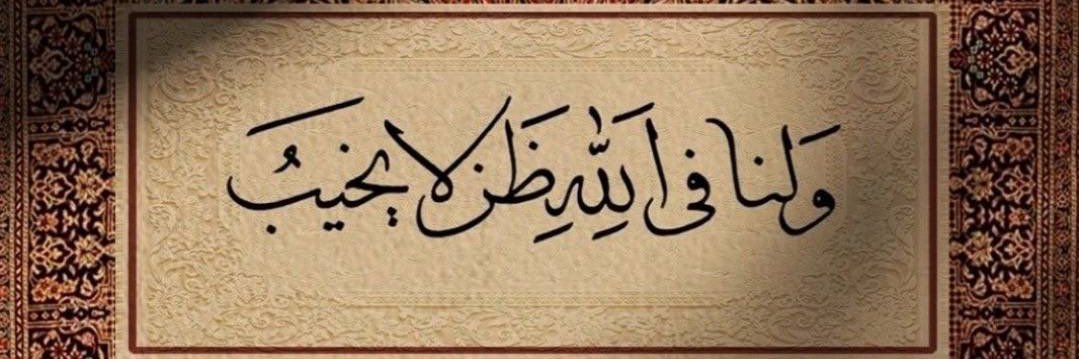 وَلنا في اَللّٰهِ ظَن لا يخيبَُ